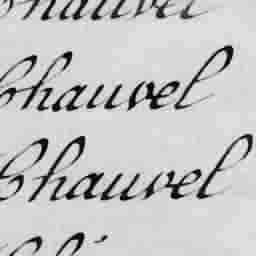 Chauvel
Chauvel
Chauvel